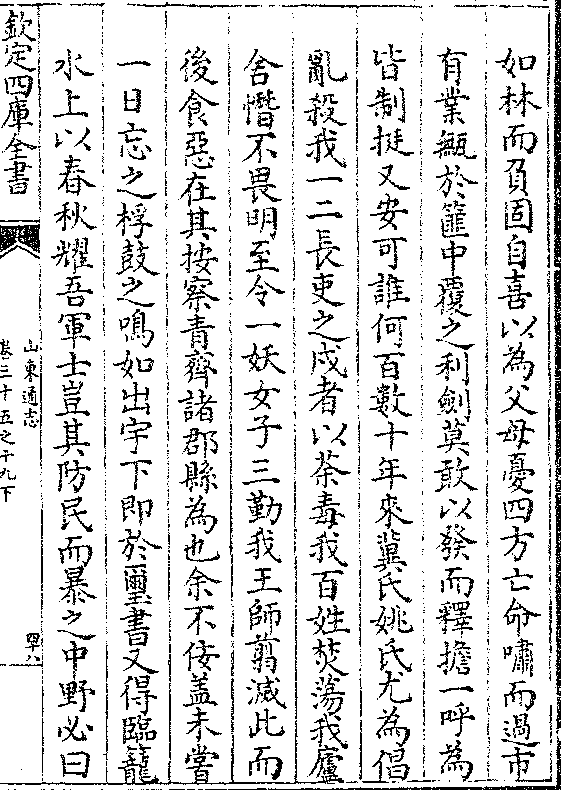 如林而負固自喜以為父母憂四方亡命嘯而過市
有業甒於籚中覆之利劍莫敢以發而釋擔一呼為
皆制挺又安可誰何百數十年來冀氏姚氏尤為倡
亂殺我一二長吏之戍者以荼毒我百姓焚蕩我廬
舍憯不畏明至令一妖女子三勤我王師翦滅此而
後食惡在其按察青齊諸郡縣為也余不佞蓋未嘗
一日忘之桴鼓之鳴如出宇下即於璽書又得臨籠
水上以春秋耀吾軍士豈其防民而暴之中野必曰
欽定四庫全書
山東通志
卷三十五之十九下
四十八